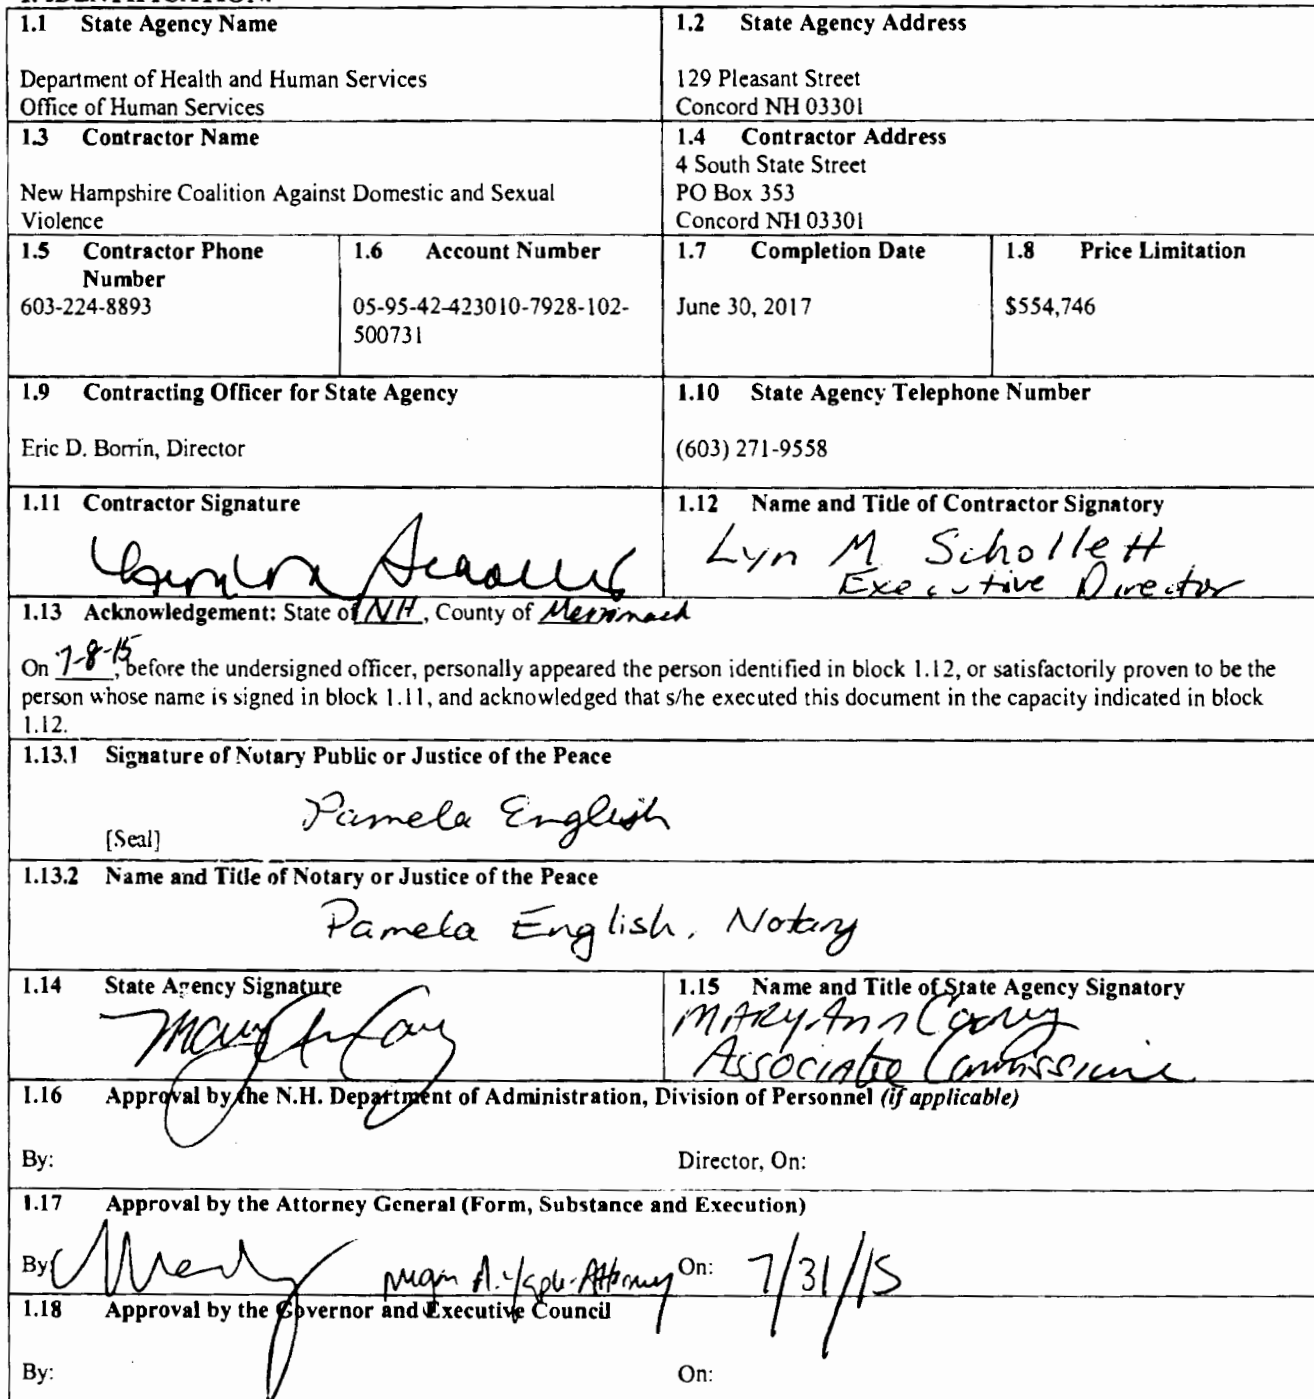 1.1 State Agency Name
Department of Health and Human Services
Office of Human Services
1.2 State Agency Address
129 Pleasant Street
Concord NH 03301
1.3 Contractor Name
New Hampshire Coalition Against Domestic and Sexual
Violence
1.4 Contractor Address
4 South State Street
PO Box 353
Concord NH 03301
1.5 Contractor Phone
Number
603-224-8893
1.6 Account Number
05-95-42-423010-7928-102-
500731
1.7 Completion Date
June 30, 2017
1.8 Price Limitation
$554,746
1.9 Contracting Officer for State Agency
Eric D. Borrin, Director
1.10 State Agency Telephone Number
(603) 271-9558
1.11 Contractor Signature
1.12 Name and Title of Contractor Signatory
Lyn M Schollett
Executive Director
1.13 Acknowledgement: State of NH, County of Merrimack
On 7-8-15, before the undersigned officer, personally appeared the person identified in block 1.12, or satisfactorily proven to be the
person whose name is signed in block 1.11, and acknowledged that s/he executed this document in the capacity indicated in block
1.12.
1.13.1 Signature of Notary Public or Justice of the Peace
Pamela English
[Seal]
1.13.2 Name and Title of Notary or Justice of the Peace
Pamela English, Notary
1.14 State Agency Signature
1.15 Name and Title of State Agency Signatory
Mary Ann Cooney
Associate Commissioner
1.16 Approval by the N.H. Department of Administration, Division of Personnel (if applicable)
By:
Director, On:
1.17 Approval by the Attorney General (Form, Substance and Execution)
By: Attorney On: 7/31/15
1.18 Approval by the Governor and Executive Council
By:
On: